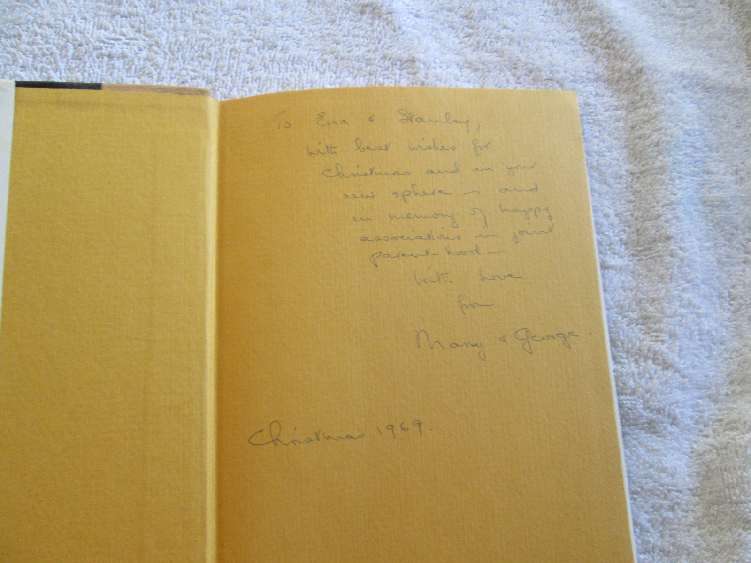 To Ena & Stanley,
with best wishes for
Christmas and in your
new sphere – and
in memory of happy
associations in joint
parent-hood –
with love
from
Mary & George.
Christmas 1969.